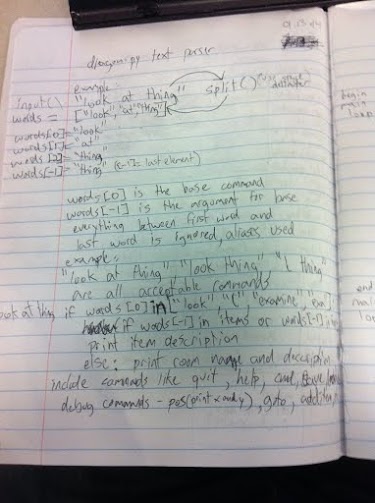 01.13.14
text parser
example:
input() "look at thing" split() (use space delimiter)
words = ["look", "at", "thing"]
words[0] = "look"
words[1] = "at"
words[2] = "thing"
words[-1] = "thing" [-1] = last element)
words[0] is the base command
words[-1] is the argument for base
everything between first word and
last word is ignored, aliases used
example:
"look at thing" "look thing" "L thing"
are all acceptable commands
if words[0] in ["look", "l", "examine",
if words[-1] in items or words[-1]
print item description
else: print room name and description
include commands like quit, help,
debug commands - pos(print x and y), goto,
begin
main
loop
end